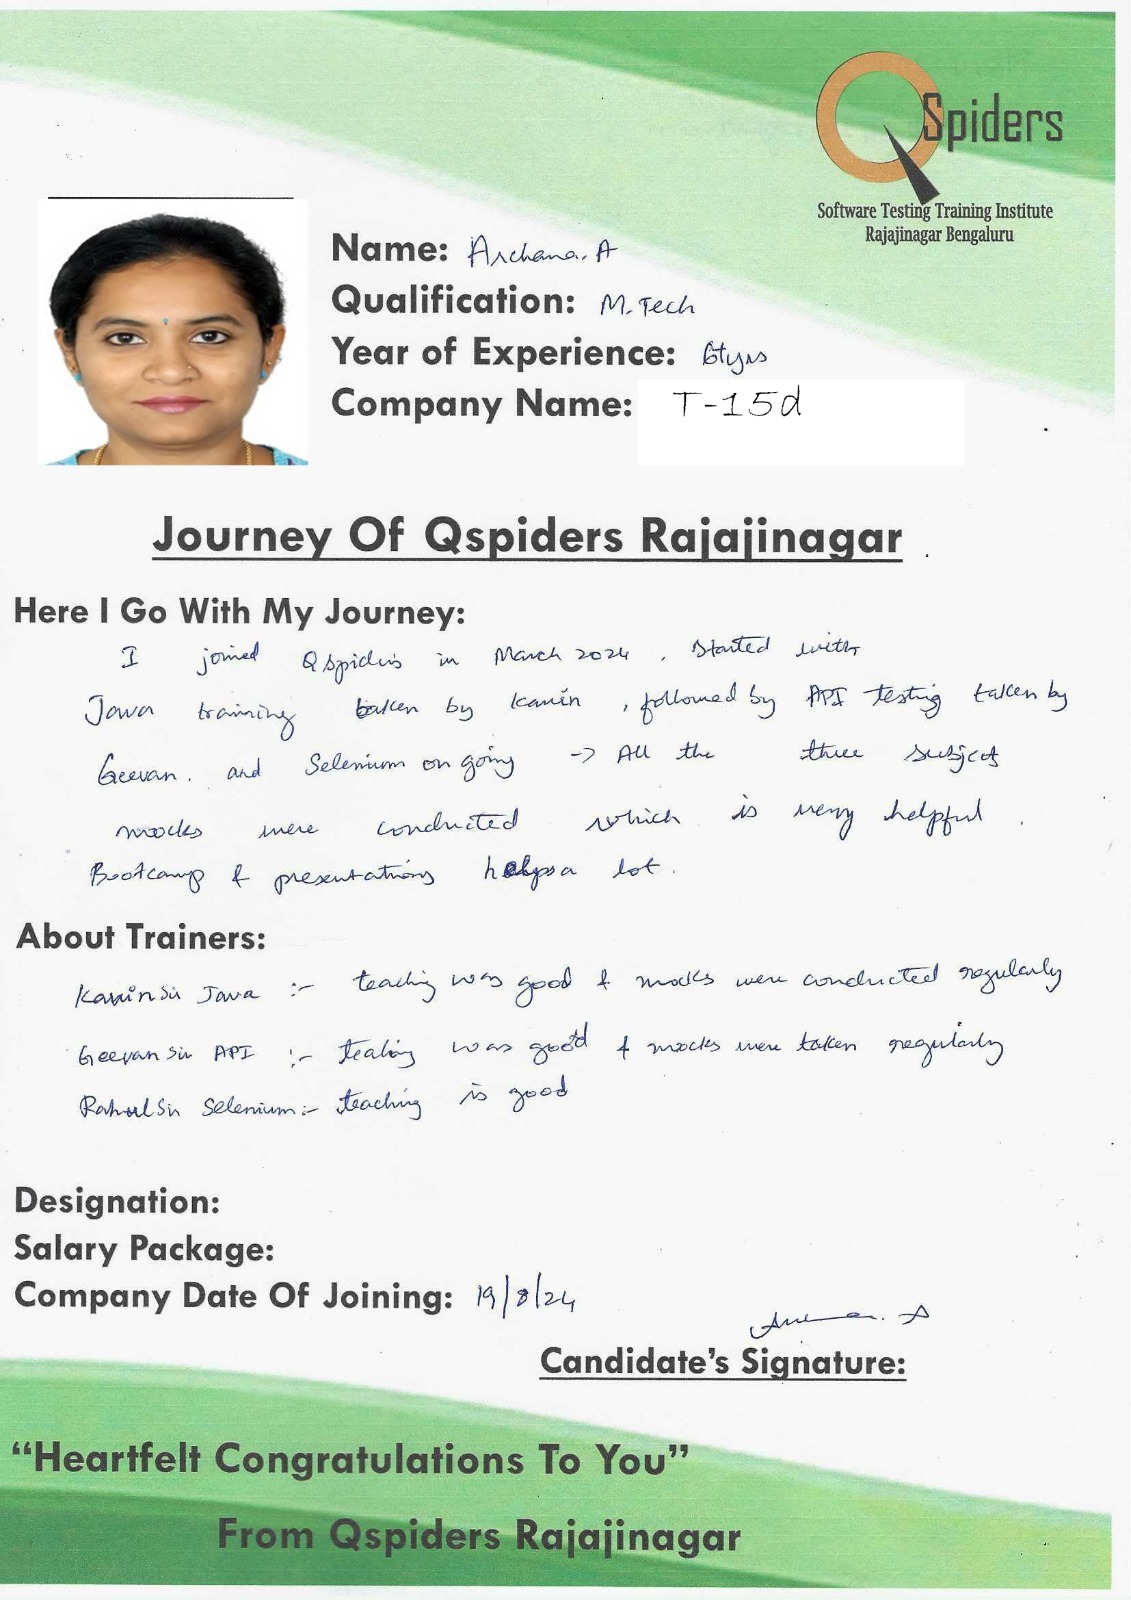 QSpiders
Software Testing Training Institute
Rajajinagar Bengaluru
Name: Archana. A
Qualification: M. Tech
Year of Experience: 6+yrs
Company Name: T-15d
Journey Of Qspiders Rajajinagar
Here I Go With My Journey:
I joined Qspiders in March 2024, started with
Java training taken by Kavin, followed by API testing taken by
Geevan. and Selenium on going -> All the three subject
mocks were conducted which is very helpful.
Bootcamp & presentations helps a lot.
About Trainers:
Kavin Sir Java :- teaching was good & mocks were conducted regularly
Geevan Sir API :- teaching was good & mocks were taken regularly
Rahul Sir Selenium :- teaching is good
Designation:
Salary Package:
Company Date Of Joining: 19/8/24
Candidate's Signature:
“Heartfelt Congratulations To You”
From Qspiders Rajajinagar